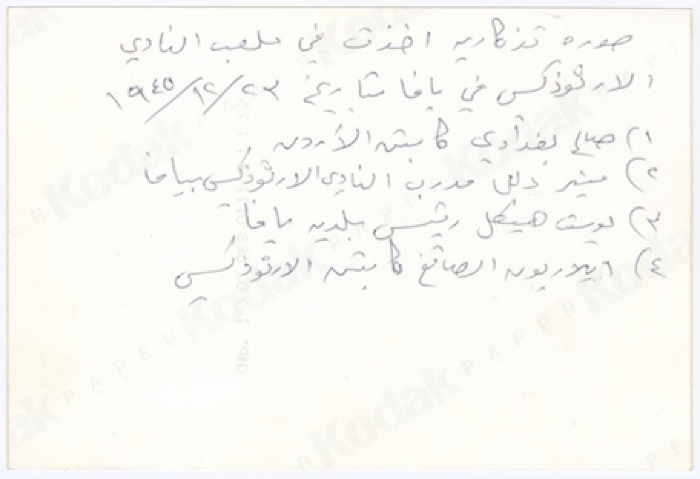 صوره تذكاريه اخذت في ملعب النادي
الارثوذكسي في يافا بتاريخ ٢٣/١٢/١٩٤٥
١) صالح بغدادي كابتن الأردن
٢) منير دلل مدرب النادي الارثوذكسي بيافا
٣) يوسف هيكل رئيس بلديه يافا
٤) ايلاريون الصائغ كابتن الارثوذكسي
Kodak
PAPER